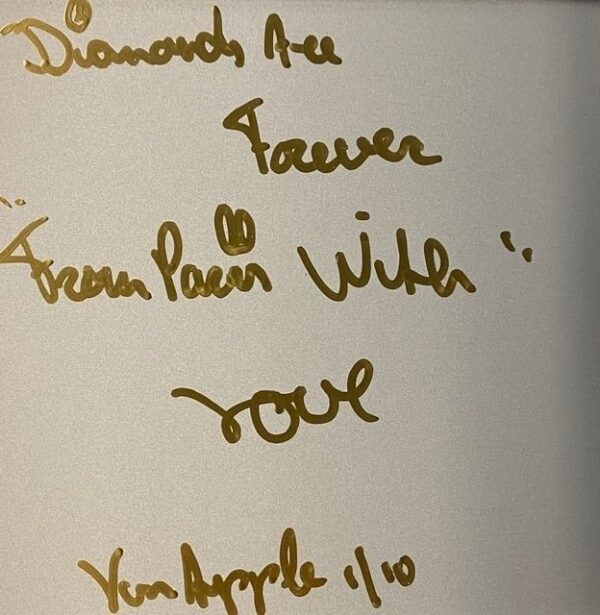 Diamonds Are
Forever
"From Paris With"
Love
Van Apple 1/10